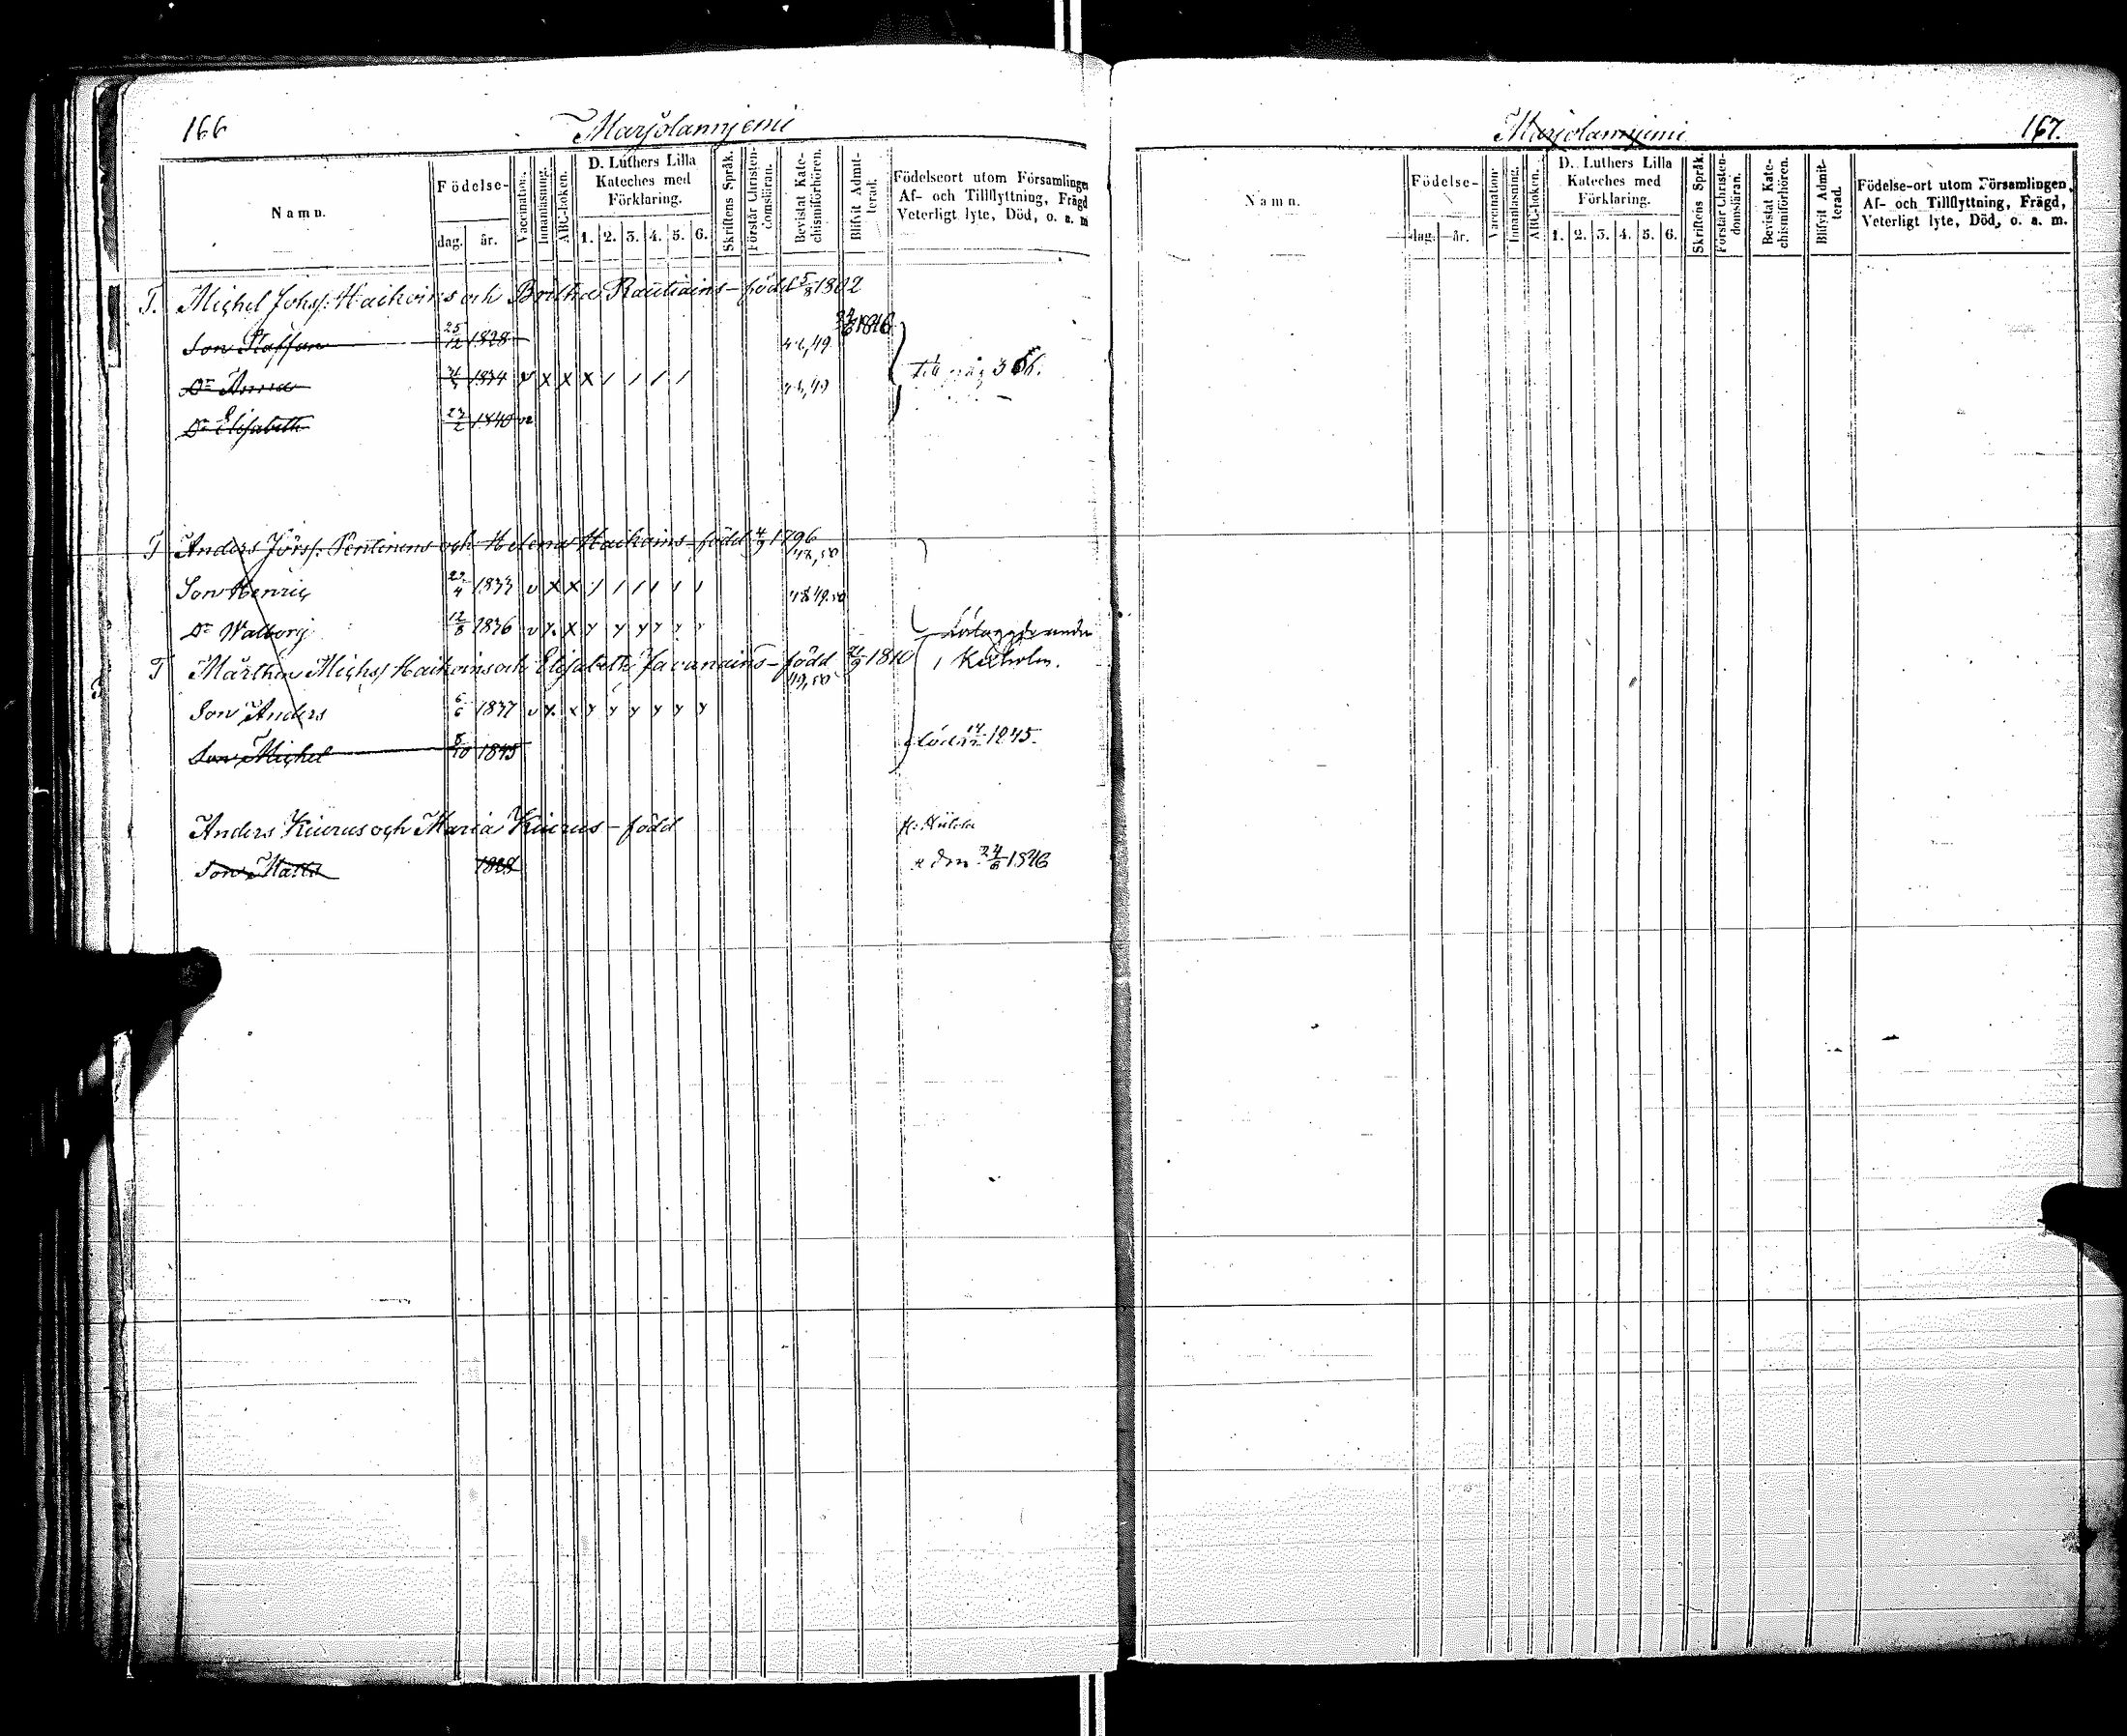 166
Marjolannjemi
Namn.
Födelse-
dag. år.
Vaccination.
Innanläsning.
ABC-boken.
D. Luthers Lilla
Kateches med
Förklaring.
1. 2. 3. 4. 5. 6.
Skriftens Språk.
Förstår Christen-
domsläran.
Bevistat Kate-
chismiförhören.
Blifvit Admit-
terad.
Födelseort utom Församlingen
Af- och Tillflyttning, Frägd
Veterligt lyte, Död, o. a. m
T. Michel Johs: Haikoins och Britha Rautiains - född 5/8 1802
Son Staffan 25/12 1828 48,49 24/6 1846
Dr Anna 1834 v x x x / / / / 48,49 till pag 366.
Dr Elisabeth 27/2 1840 va
T Anders Jörs: Pentinens och Helena Haikoins - född 4/9 1796
48,50
Son Henric 23/4 1833 v x x / / / / / / 48.49.50
Dr Walborg 12/8 1836 v y. x y y y y y y
T Märthen Michs Haikoins och Elisabeth Javanains - född 21/9 1810 i Kexholm.
49,50
Son Anders 6/6 1837 v y. x y y y y y y
Son Michel 8/10 1845 död 14/12 1845.
Anders Kiurus och Maria Kiurus - född
Son Matts 1828 den 24/6 1846
Marjolannjemi
167.
Namn.
Födelse-
dag. år.
Vaccination.
Innanläsning.
ABC-boken.
D. Luthers Lilla
Kateches med
Förklaring.
1. 2. 3. 4. 5. 6.
Skriftens Språk.
Förstår Christen-
domsläran.
Bevistat Kate-
chismiförhören.
Blifvit Admit-
terad.
Födelse-ort utom Församlingen,
Af- och Tillflyttning, Frägd,
Veterligt lyte, Död, o. a. m.